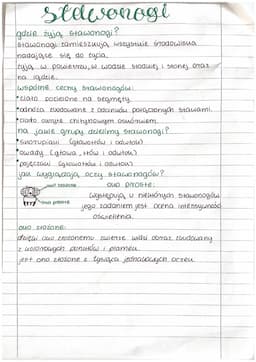 stawonogi
gdzie żyją stawonogi?
stawonogi zamieszkują wszystkie środowiska
nadające się do życia.
żyją w powietrzu, w wodzie słodkiej i słonej oraz
na lądzie.
wspólne cechy stawonogów:
• ciało podzielone na segmenty.
zbudowane z odcinków połączonych stawami.
• ciało okryte chitynowym oskórkiem.
na jakie grupy dzielimy stawonogi?
• skorupiaki (głowotłów i odwłok)
• owady (głowa, tłów i odwłok)
• pajęczaki (głowotłów i odwłok)
jak wyglądają oczy stawonogów?
oko złożone
oko proste:
oko proste
występują u niektórych stawonogów
jego zadaniem jest ocena intensywności
oświetlenia.
oko złożone:
dzięki oku złożonemu zwierzę widzi obraz zbudowany
z kolorowych punktów i plamek.
jest ono złożone z tysiąca jednakowych oczek.